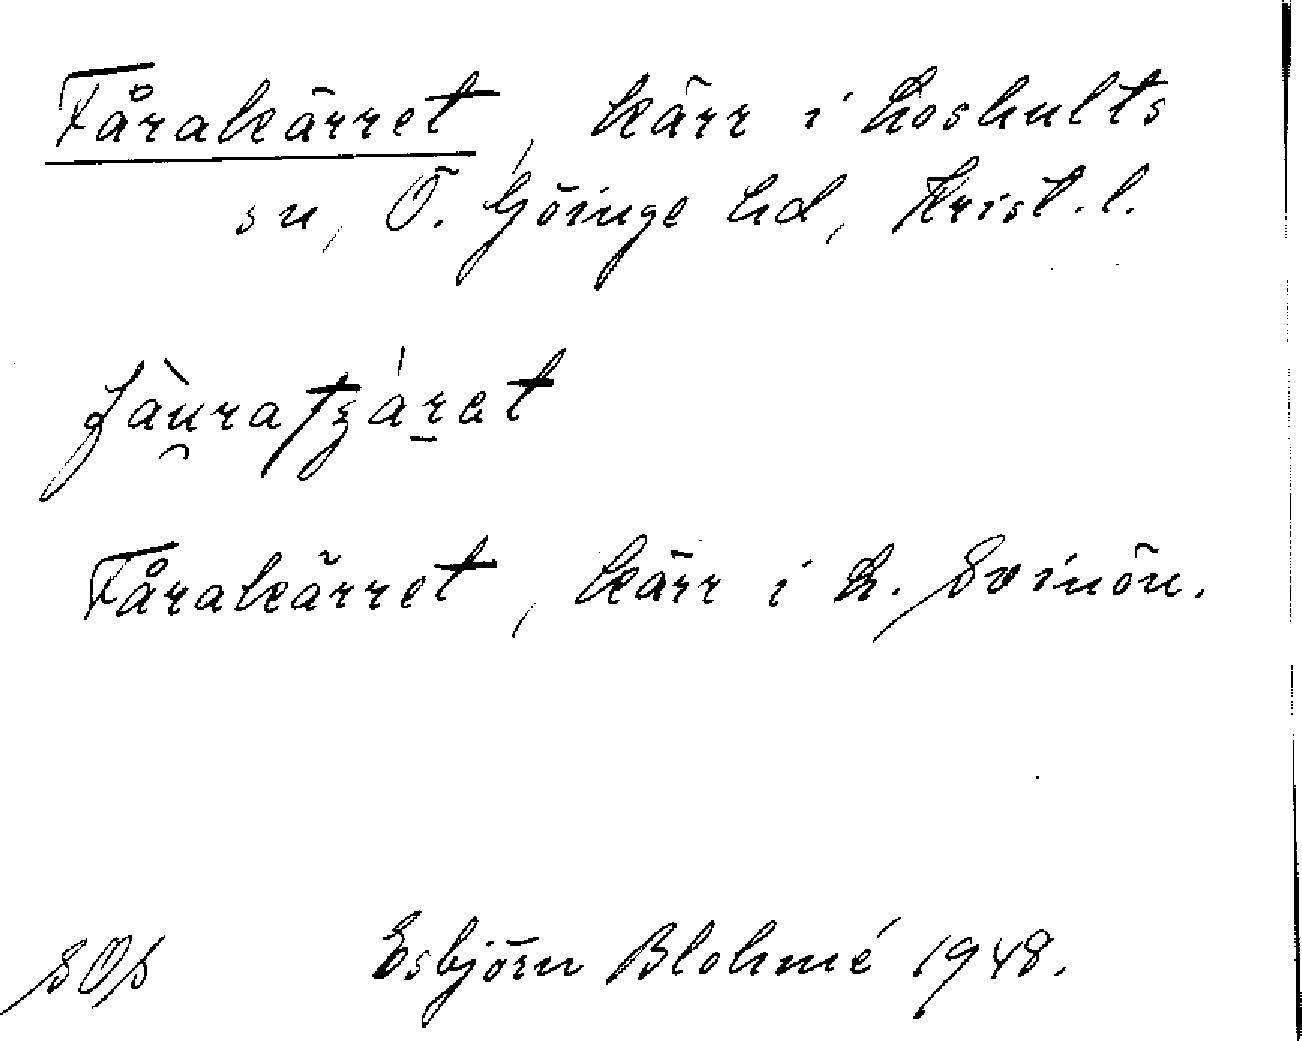 Fårakärret, kärr i Loshults
sn, Ö. Göinge hd, Krist. l.
Fårakärret, kärr i L. Svinön.
SOs Esbjörn Blohmé 1948.